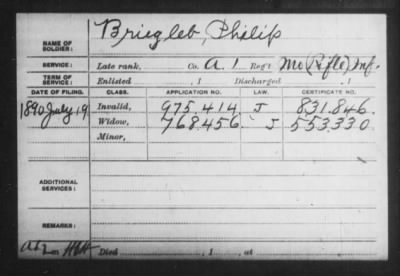 NAME OF SOLDIER: Briegleb, Philip
SERVICE: Late rank, Co. A. 1 Reg't Mo Rifle Inf.
TERM OF SERVICE: Enlisted , 1 Discharged , 1
DATE OF FILING. CLASS. APPLICATION NO. LAW. CERTIFICATE NO.
1890 July 19 Invalid, 975.414 J 831.846
Widow, 768.456 J 553.330
Minor,
ADDITIONAL SERVICES:
REMARKS:
Died , 1 , at